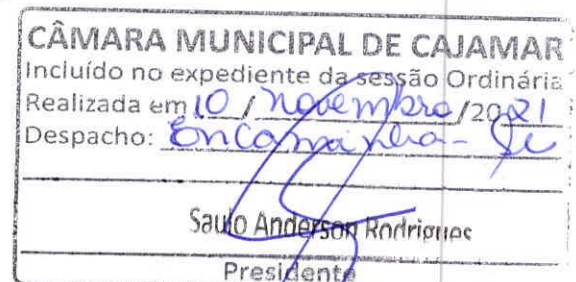 CÂMARA MUNICIPAL DE CAJAMAR
Incluído no expediente da sessão Ordinária
Realizada em 10 / novembro /2021
Despacho: Encaminha-se
Saulo Anderson Rodrigues
Presidente